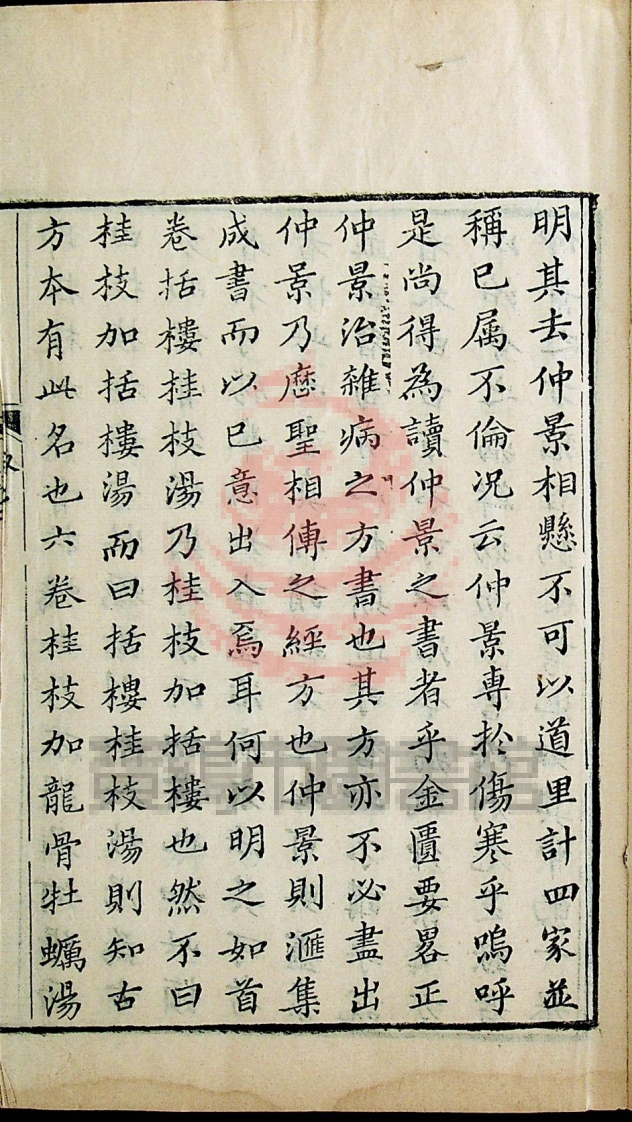 明其去仲景相懸不可以道里計四家並
稱已属不倫況云仲景専於傷寒乎嗚呼
是尚得為讀仲景之書者乎金匱要畧正
仲景治雜病之方書也其方亦不必盡出
仲景乃歷聖相傳之經方也仲景則滙集
成書而以已意出入焉耳何以明之如首
卷括樓桂枝湯乃桂枝加括樓也然不曰
桂枝加括樓湯而曰括樓桂枝湯則知古
方本有此名也六卷桂枝加龍骨牡蠣湯